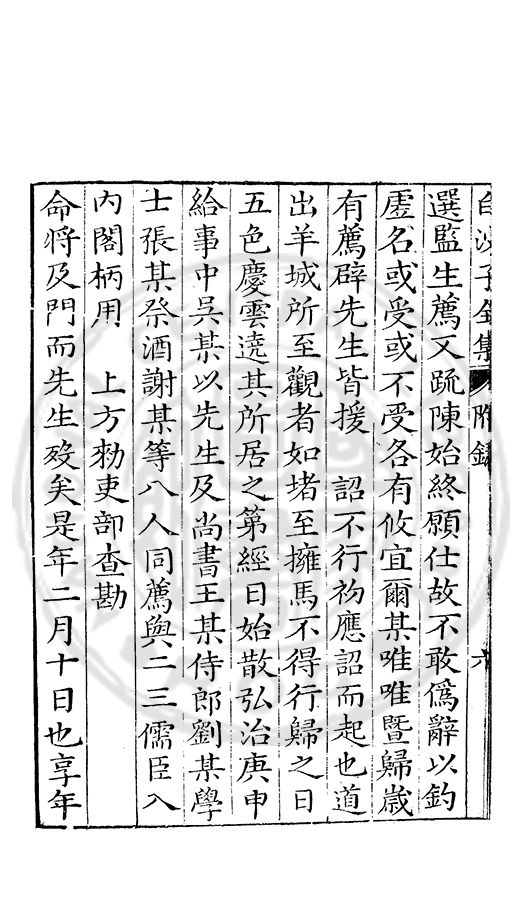 白沙子全集 附錄 六
選監生薦又疏陳始終願仕故不敢僞辭以釣
虗名或受或不受各有攸宜爾某唯唯暨歸歲
有薦辟先生皆援 詔不行初應詔而起也道
出羊城所至觀者如堵至擁馬不得行歸之日
五色慶雲遶其所居之第經日始散弘治庚申
給事中吳某以先生及尚書王某侍郎劉某學
士張某祭酒謝某等八人同薦與二三儒臣入
內閣柄用 上方勑吏部查勘
命將及門而先生歿矣是年二月十日也享年